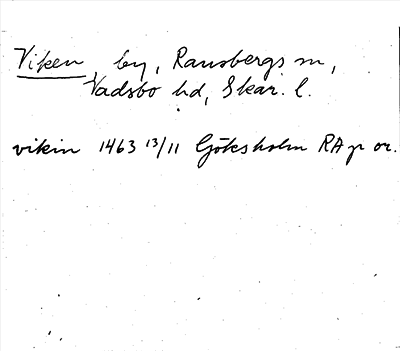 Viken by, Ransbergs sn,
Vadsbo hd, Skar. l.
vikin 1463 13/11 Göksholm RA p or.